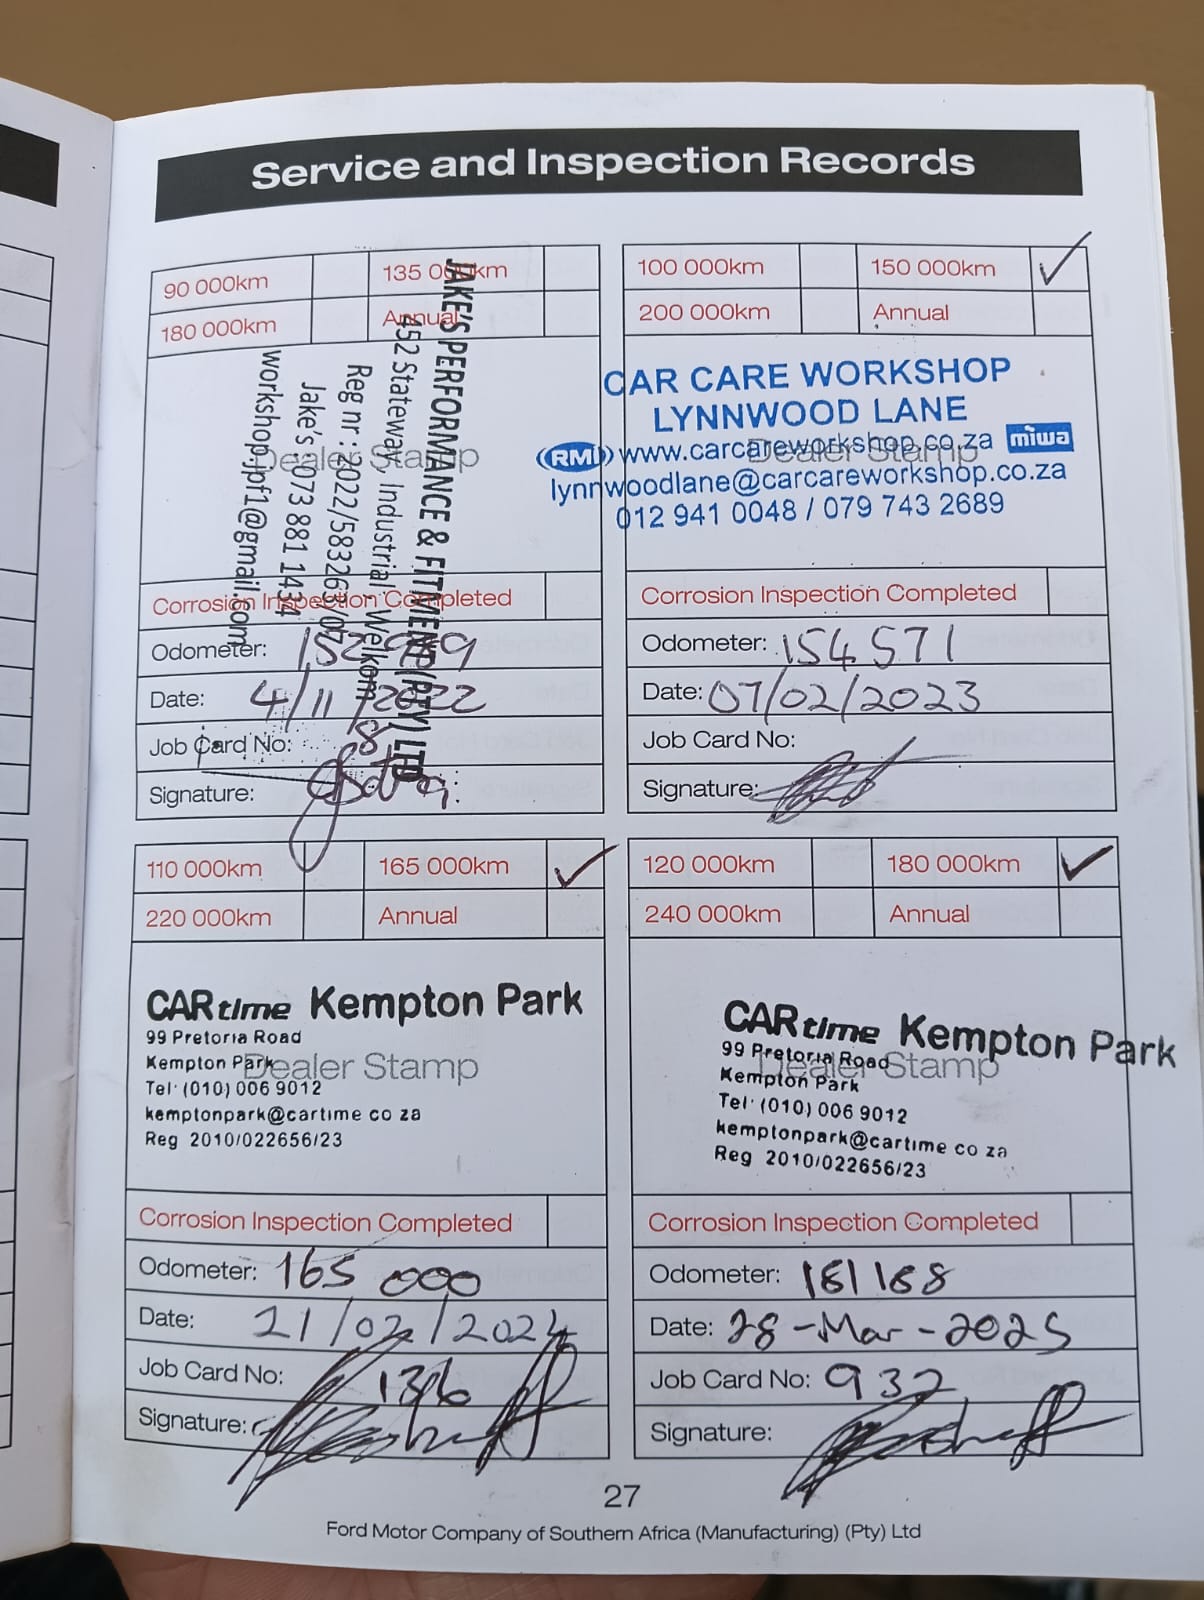 Service and Inspection Records
90 000km
135 000km
180 000km
Annual
Dealer Stamp
JAKE'S PERFORMANCE & FITMENT (PTY) LTD
452 Stateway, Industrial, Welkom
Reg nr : 2022/583263/07
Jake's : 073 881 1434
workshop.jpf1@gmail.com
Corrosion Inspection Completed
Odometer:
Date: 4/11/2022
Job Card No:
Signature:
100 000km
150 000km ✓
200 000km
Annual
CAR CARE WORKSHOP
LYNNWOOD LANE
Dealer Stamp
RMI www.carcareworkshop.co.za miwa
lynnwoodlane@carcareworkshop.co.za
012 941 0048 / 079 743 2689
Corrosion Inspection Completed
Odometer: 154571
Date: 07/02/2023
Job Card No:
Signature:
110 000km
165 000km ✓
220 000km
Annual
CARtime Kempton Park
99 Pretoria Road
Kempton Park
Dealer Stamp
Tel: (010) 006 9012
kemptonpark@cartime co za
Reg 2010/022656/23
Corrosion Inspection Completed
Odometer: 165 000
Date: 21/02/2024
Job Card No: 1326
Signature:
120 000km
180 000km ✓
240 000km
Annual
CARtime Kempton Park
99 Pretoria Road
Dealer Stamp
Kempton Park
Tel: (010) 006 9012
kemptonpark@cartime co za
Reg 2010/022656/23
Corrosion Inspection Completed
Odometer: 181168
Date: 28-Mar-2025
Job Card No: 932
Signature:
27
Ford Motor Company of Southern Africa (Manufacturing) (Pty) Ltd